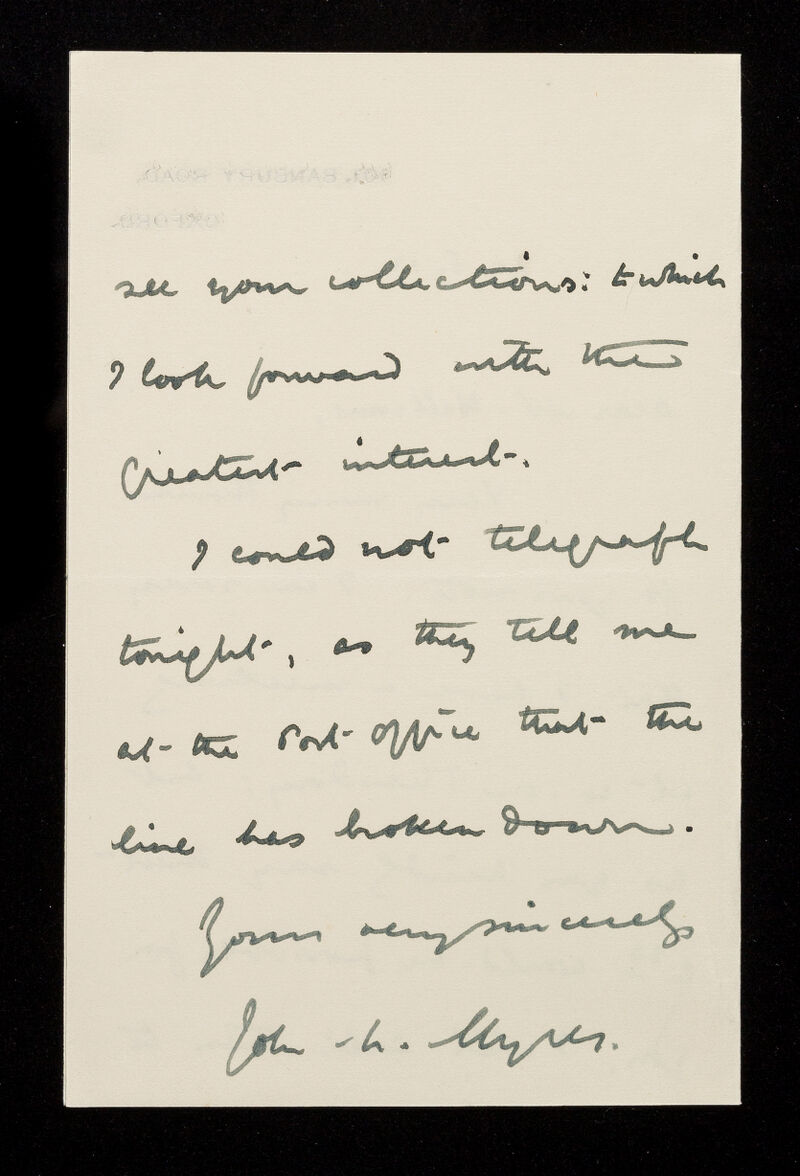 BANBURY ROAD.
OXFORD.
see your collections: to which
I look forward with the
greatest interest.
I could not telegraph
tonight, as they tell me
at the Post office that the
line has broken down.
Yours very sincerely
John L. Myres.